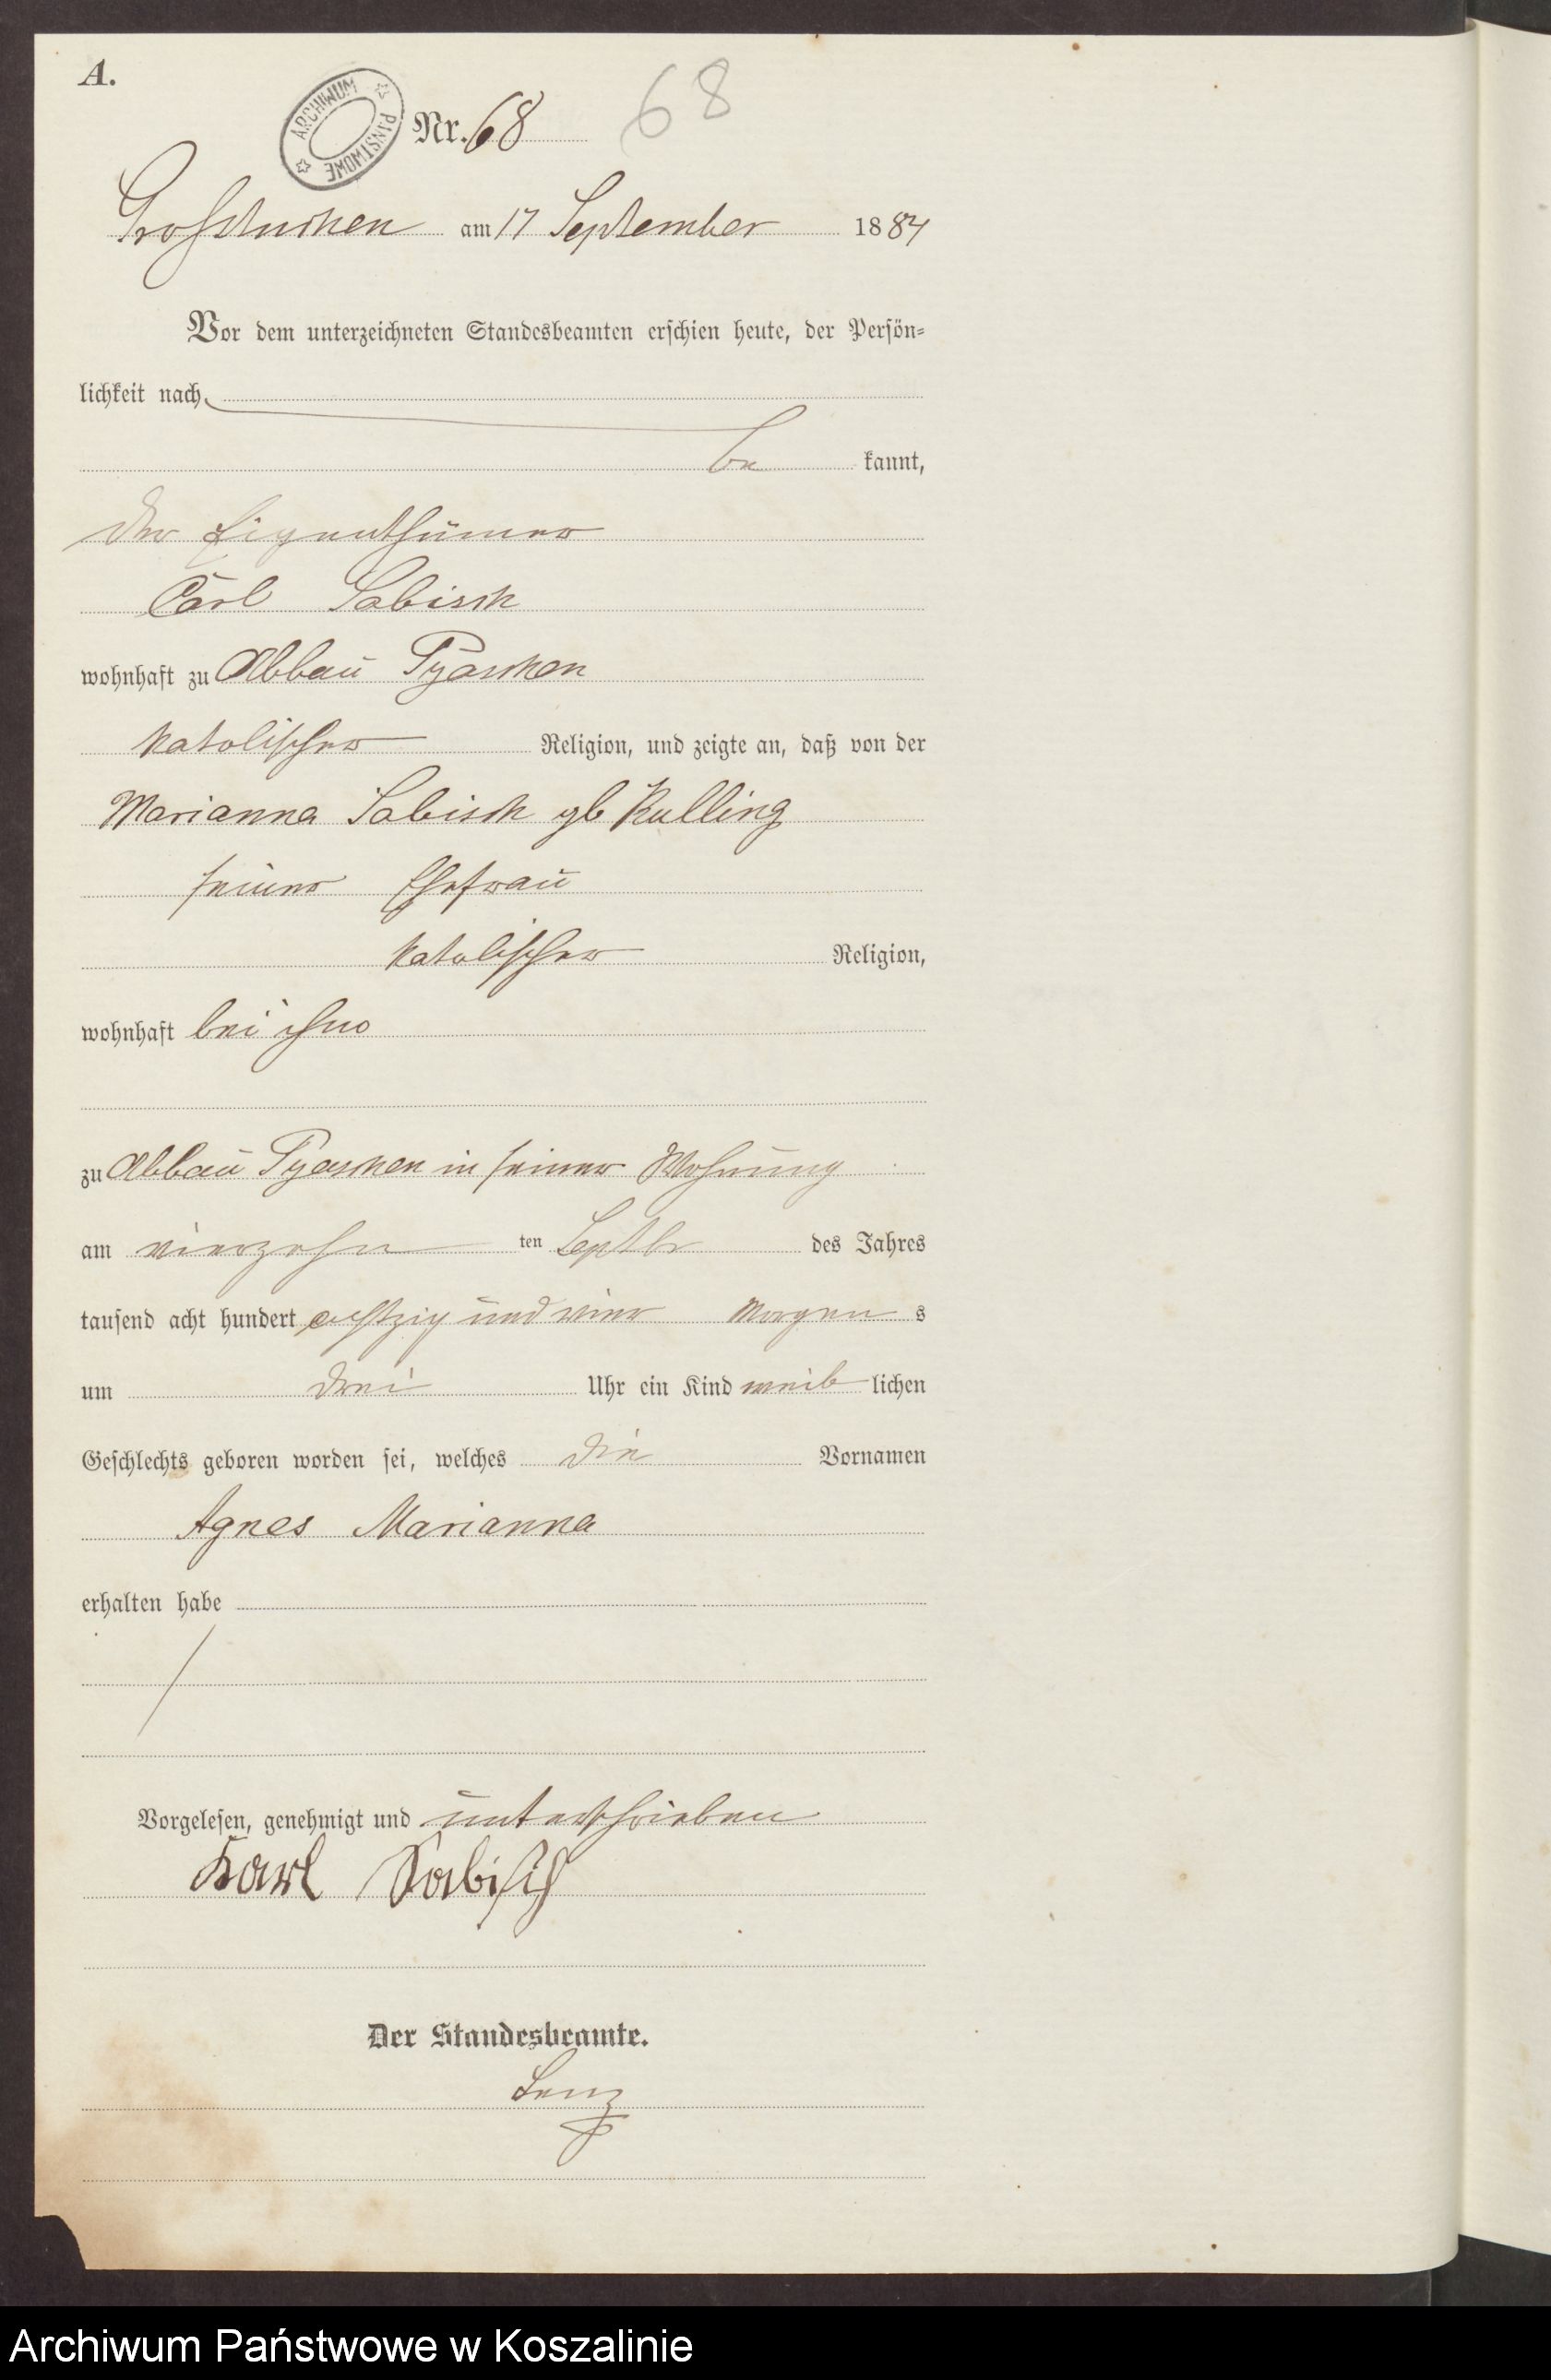 A.
ARCHIWUM PAŃSTWOWE
Nr. 68 68
Großtuchen am 17 September 1884
Vor dem unterzeichneten Standesbeamten erschien heute, der Persön-
lichkeit nach
be kannt,
der Eigenthümer
Carl Sabisch
wohnhaft zu Abbau Pyaschen
katolischer Religion, und zeigte an, daß von der
Marianna Sabisch gb Kulling
seiner Ehefrau
katolischer Religion,
wohnhaft bei ihm
zu Abbau Pyaschen in seiner Wohnung
am vierzehn ten Septbr des Jahres
tausend acht hundert achtzig und vier Morgen s
um drei Uhr ein Kind weib lichen
Geschlechts geboren worden sei, welches die Vornamen
Agnes Marianna
erhalten habe
Vorgelesen, genehmigt und unterschrieben
Karl Sabisch
Der Standesbeamte.
Lenz
Archiwum Państwowe w Koszalinie